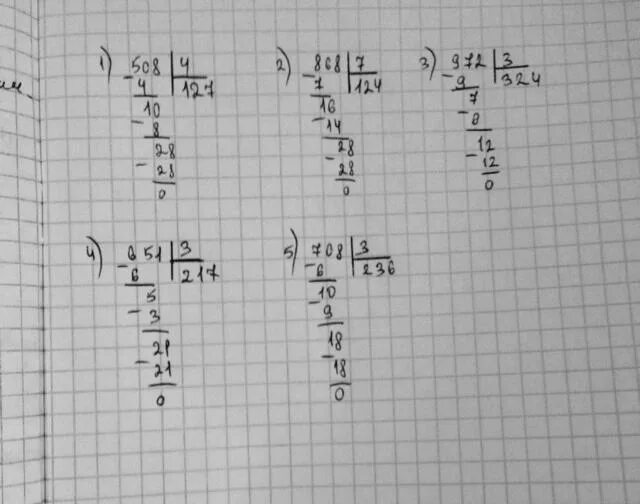 1) 508 4
4 127
10
8
28
28
0
2) 868 7
7 124
16
14
28
28
0
3) 972 3
9 324
7
6
12
12
0
4) 651 3
6 217
5
3
21
21
0
5) 708 3
6 236
10
9
18
18
0